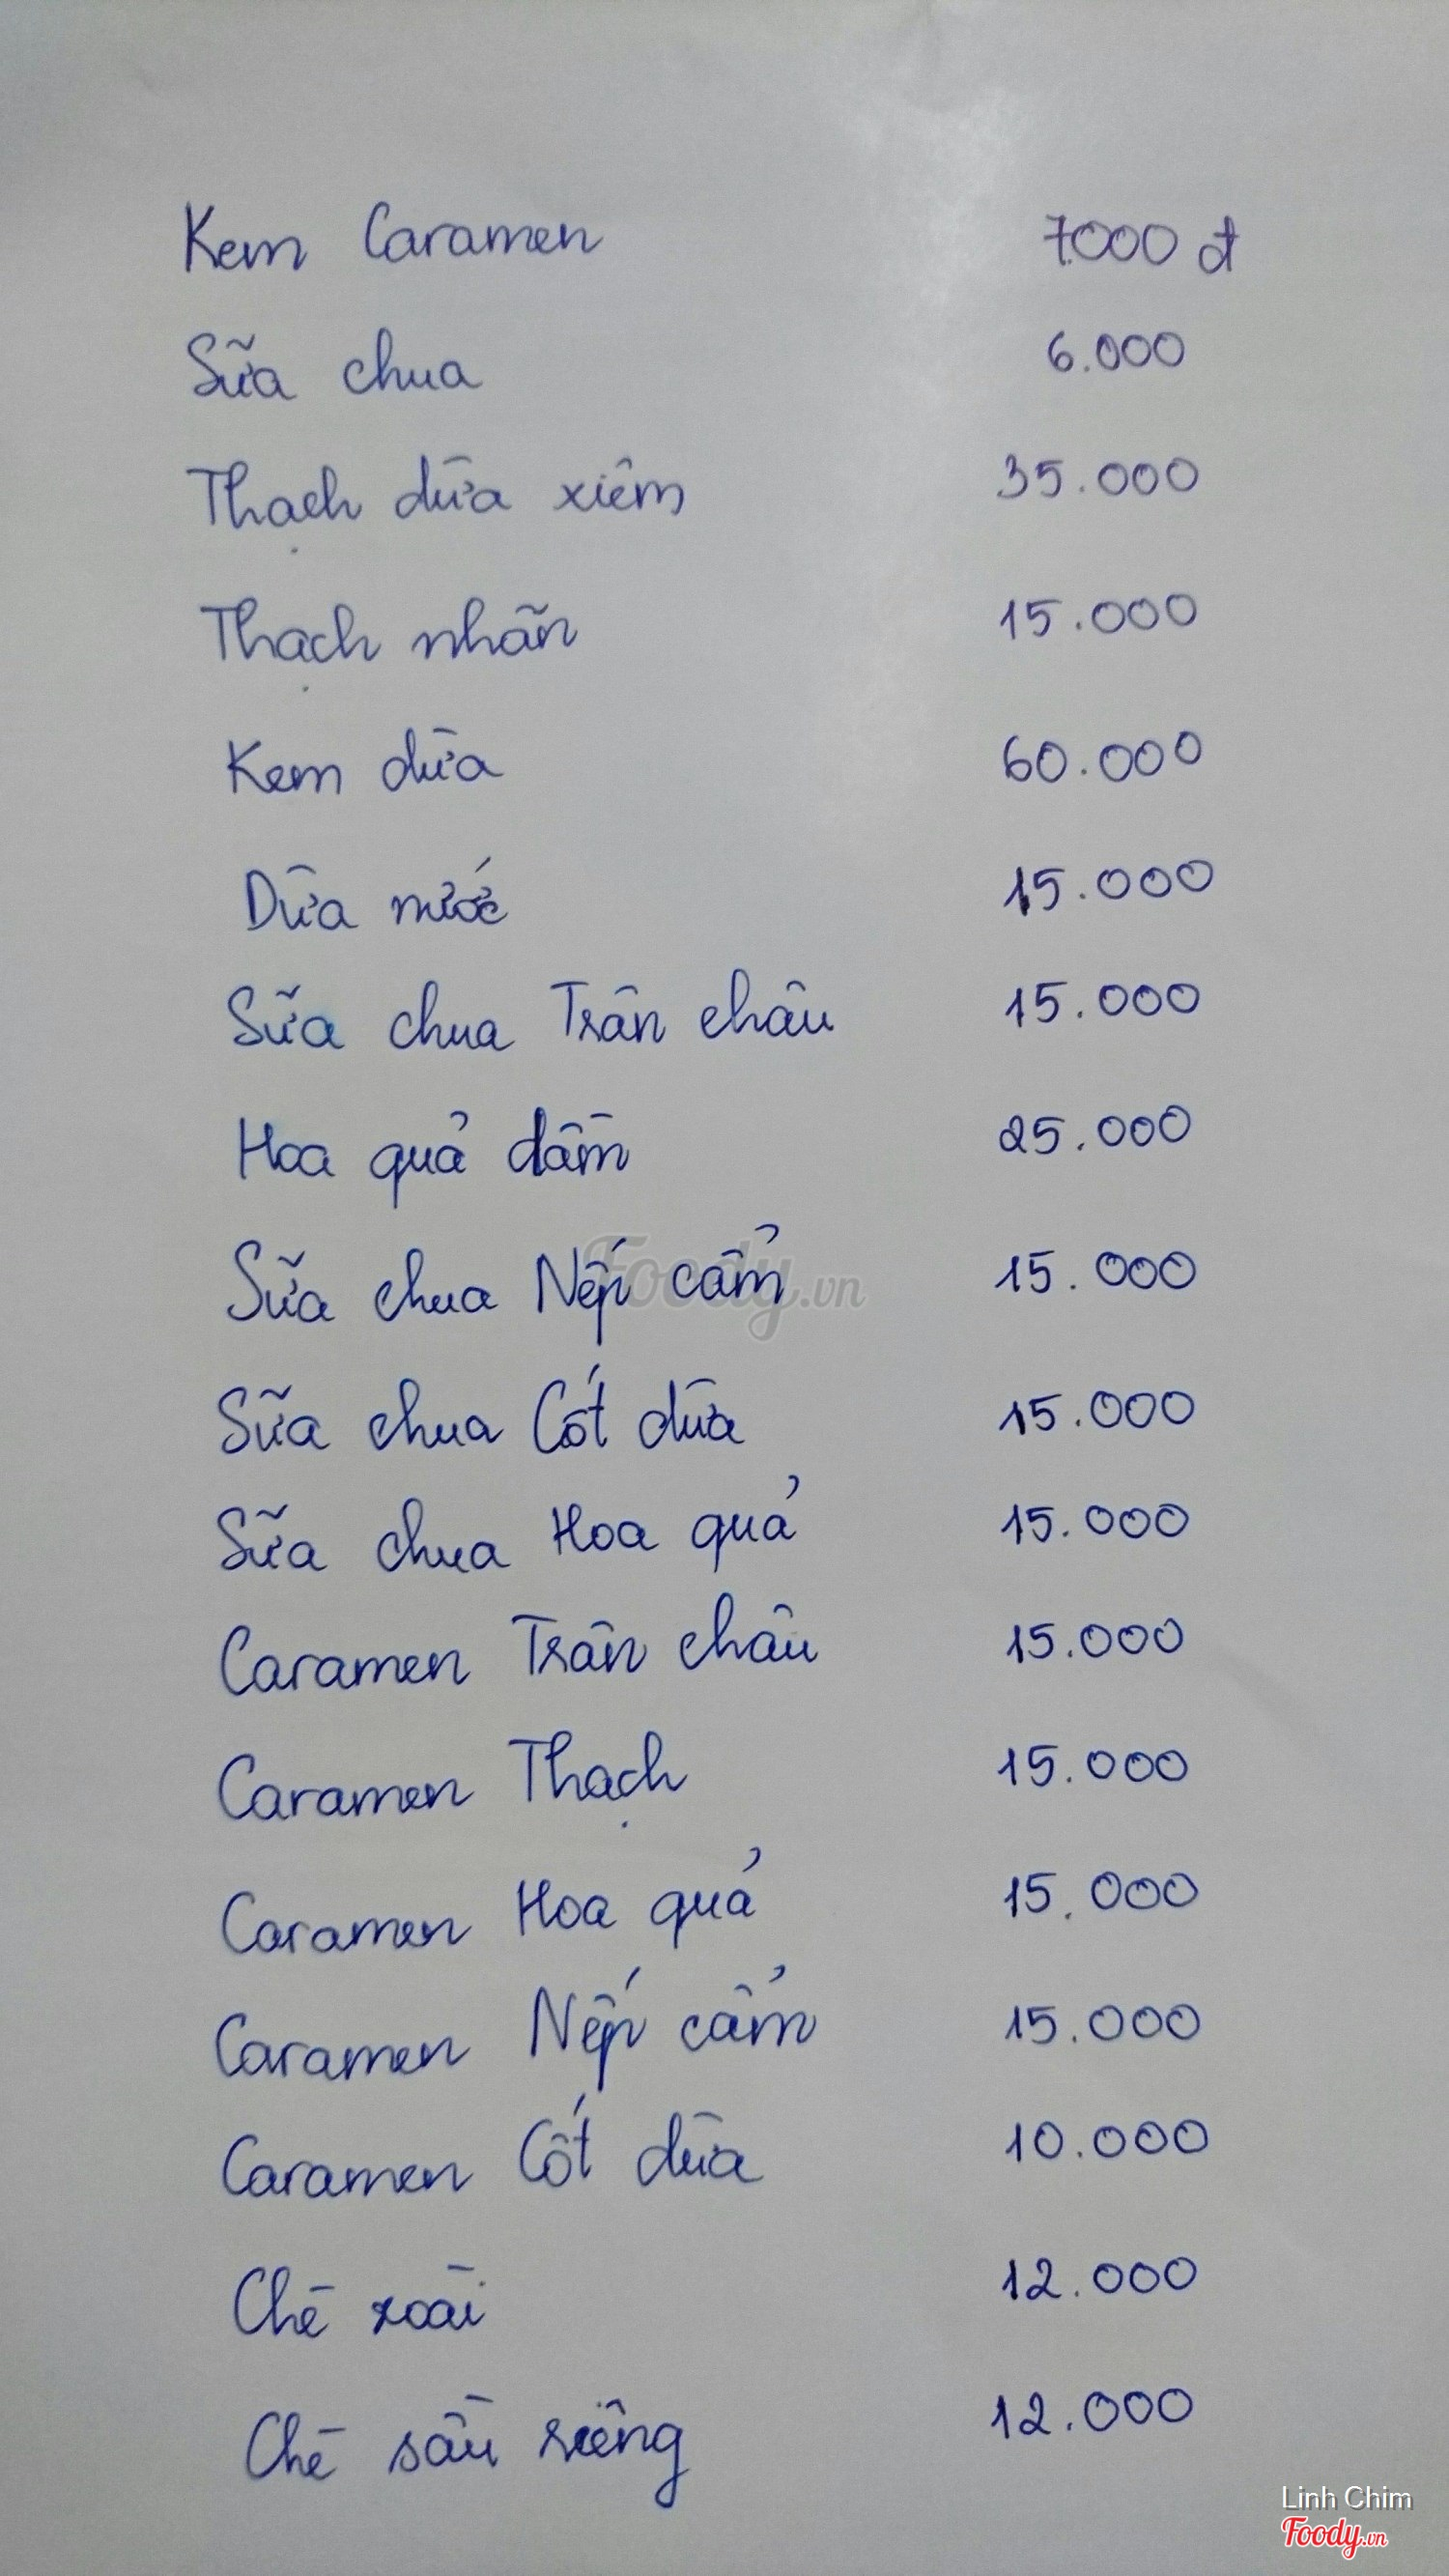 Kem Caramen 7.000 đ
Sữa chua 6.000
Thạch dừa xiêm 35.000
Thạch nhãn 15.000
Kem dừa 60.000
Dừa nước 15.000
Sữa chua Trân châu 15.000
Hoa quả dầm 25.000
Sữa chua Nếp cẩm 15.000
Foody.vn
Sữa chua Cốt dừa 15.000
Sữa chua Hoa quả 15.000
Caramen Trân châu 15.000
Caramen Thạch 15.000
Caramen Hoa quả 15.000
Caramen Nếp cẩm 15.000
Caramen Cốt dừa 10.000
Chè xoài 12.000
Chè sầu riêng 12.000
Linh Chim
Foody.vn